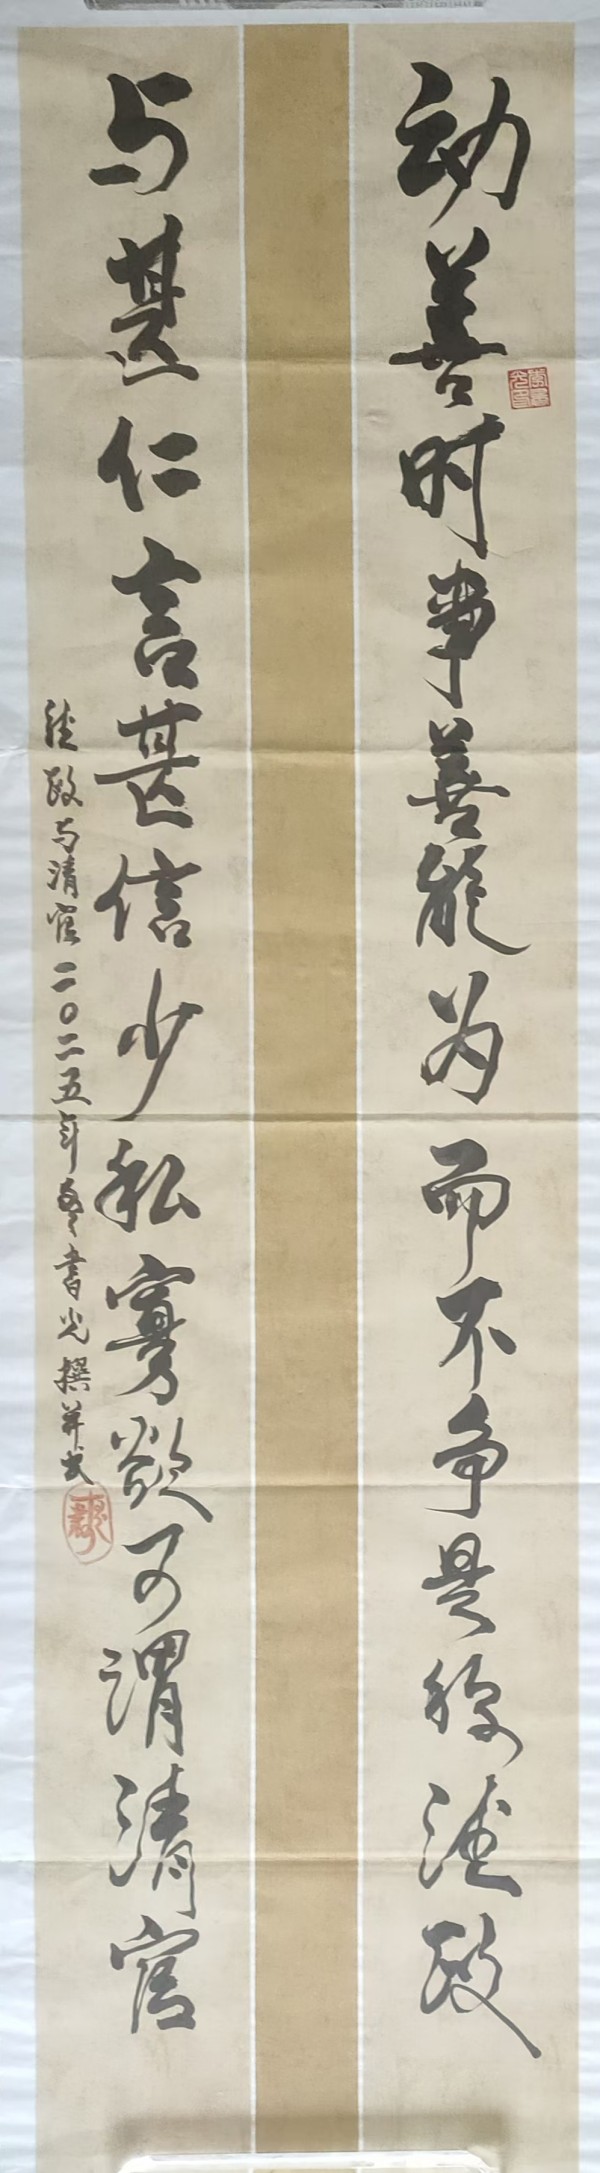 动善时事善能为而不争是称德政
与甚仁言甚信少私寡欲可谓清官
德政与清官二〇二五年书光撰并